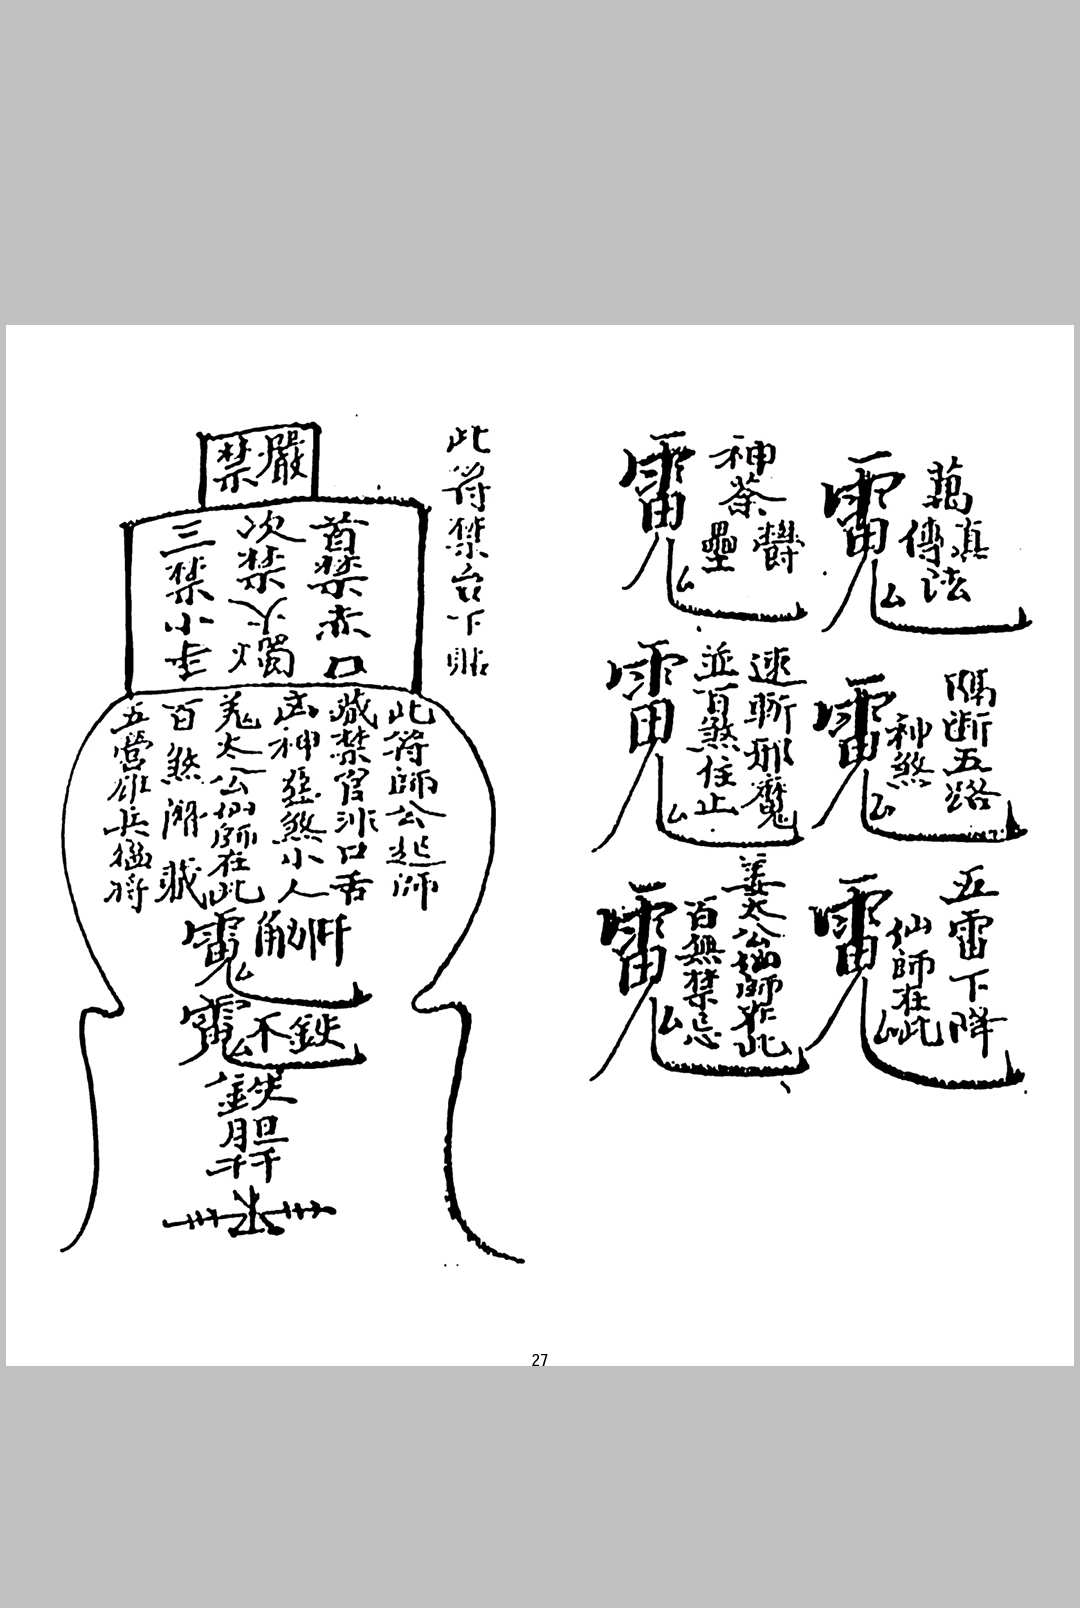 神荼
鬱壘
傳法
速斬邪魔
並百煞住止
隔斷五路
神煞
姜太公仙師在此
百無禁忌
五雷下降
仙師在此
此符禁台下貼
嚴禁
首禁赤口
次禁火燭
三禁小
此符師公起師
藏禁官非口舌
凶神惡煞小人
姜太公仙師在此
百煞潛藏
五營雄兵猛將
27